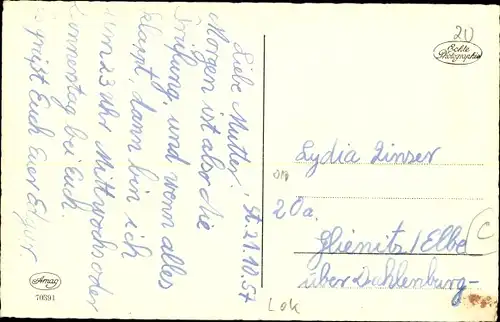 St. 21.10.57
Liebe Mutter!
Morgen ist also die
Prüfung, und wenn alles
klappt, dann bin ich
um 23 Uhr Mittwochs oder
Donnerstag bei Euch.
Es grüßt Euch Euer Edgar.
Amag
70391
20
Echte
Photographie
Lydia Zinser
20a.
Glienitz/Elbe
über Dahlenburg-
C
Lok